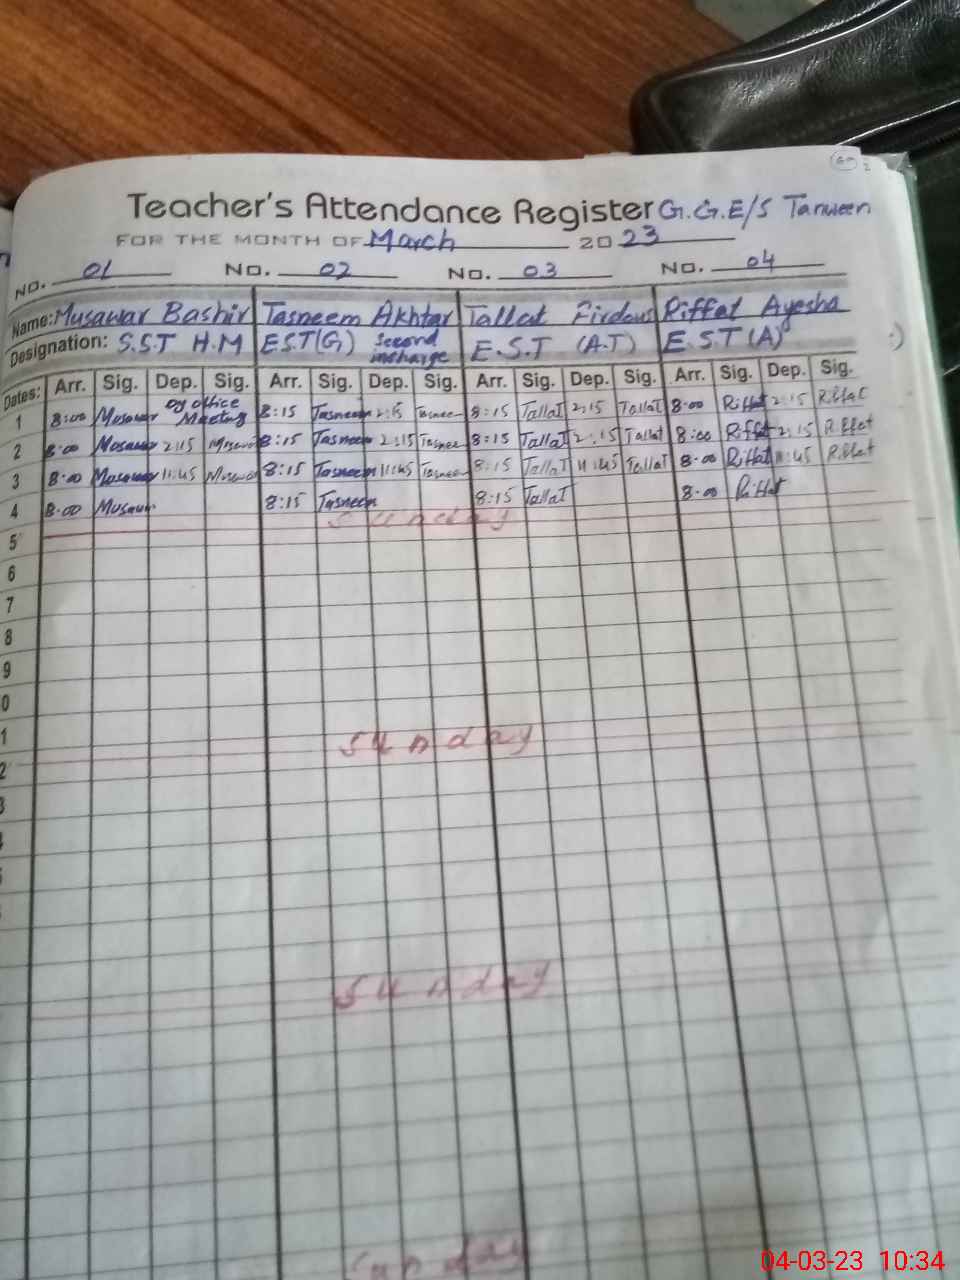 Teacher's Attendance Register G.G.E/S Tanween
FOR THE MONTH OF March 2023
NO. 01 NO. 02 NO. 03 NO. 04
Name: Musawar Bashir Tasneem Akhtar Tallat Firdous Riffat Ayesha
Designation: S.S.T H.M E.S.T(G) Second incharge E.S.T (A.T) E.S.T (A)
Dates: Arr. Sig. Dep. Sig. Arr. Sig. Dep. Sig. Arr. Sig. Dep. Sig. Arr. Sig. Dep. Sig.
1 8:00 Musawar office Meeting 8:15 Tasneem 2:15 Tasnee 8:15 Tallat 2:15 Tallat 8:00 Riffat 2:15 Riffat
2 8:00 Musawar 2:15 Musawar 8:15 Tasneem 2:15 Tasnee 8:15 Tallat 2:15 Tallat 8:00 Riffat 2:15 Riffat
3 8:00 Musawar 11:45 Musawar 8:15 Tasneem 11:45 Tasnee 8:15 Tallat 11:45 Tallat 8:00 Riffat 11:45 Riffat
4 8:00 Musawar 8:15 Tasneem 8:15 Tallat 8:00 Riffat
5 Sunday
6
7
8
9
0
1
2 Sunday
3
Sunday
Sunday
04-03-23 10:34